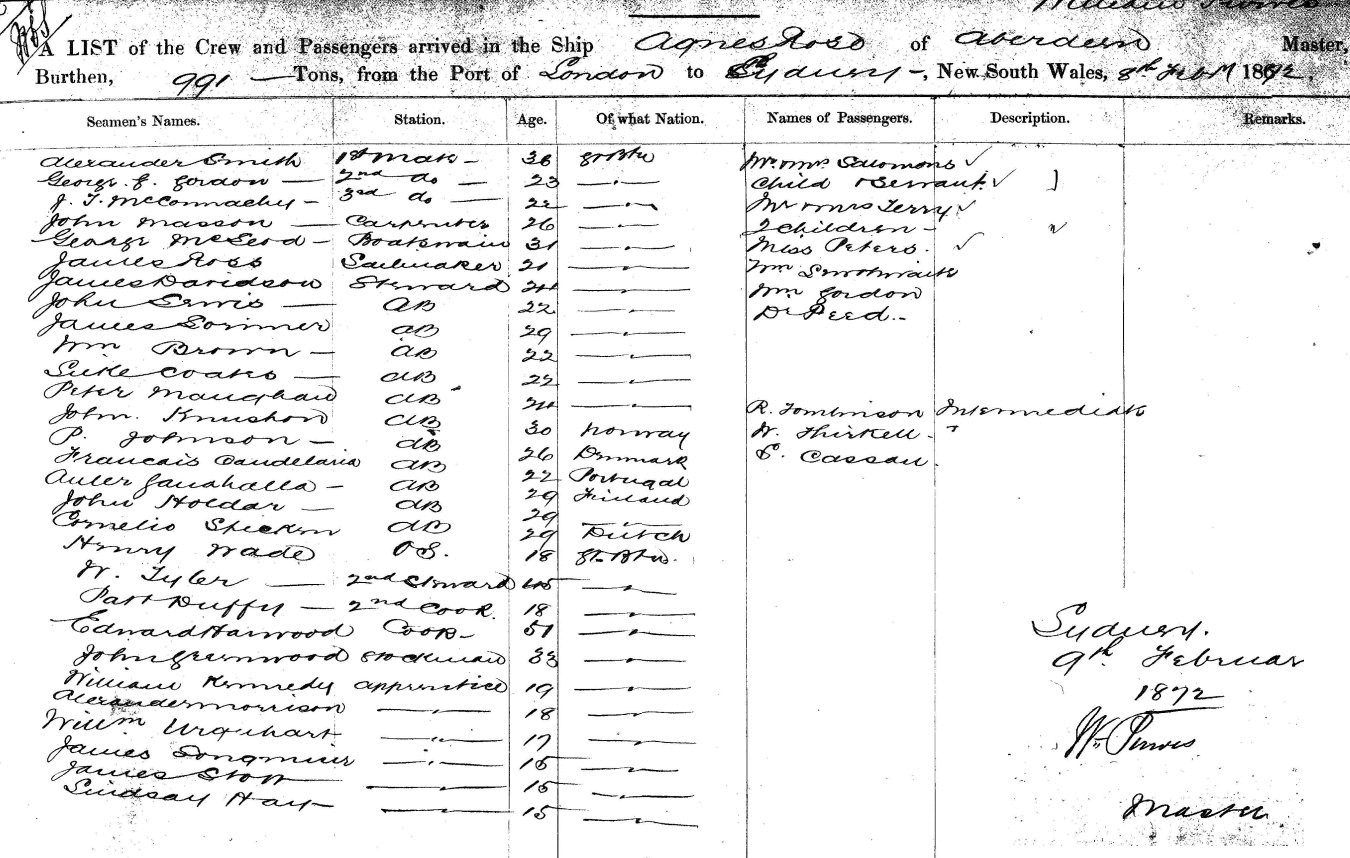 A LIST of the Crew and Passengers arrived in the Ship Agnes Rose of Aberdeen Master,
Burthen, 991 — Tons, from the Port of London to Sydney —, New South Wales, 8th Feb 1872.
Seamen's Names. Station. Age. Of what Nation. Names of Passengers. Description. Remarks.
Alexander Smith 1st Mate — 36 Mr & Mrs Salomons ✓
George G. Gordon — 2nd do — 23 — " — Child & Servant ✓
J. T. McConnachy — 3rd do — 22 — " — Mr & Mrs Terry ✓
John Masson — Carpenter 26 — " — 2 Children — "
George McLeod — Boatswain 31 — " — Miss Peters. ✓
James Ross Sailmaker 21 — " — Wm
James Davidson Steward 24 — " — Wm Gordon
John Lewis — AB 22 — " — Dr Reed —
James Lorimer AB 29 — " —
Wm Brown — AB 22 — " —
Coates — AB 22 — " —
Peter Maughan AB 24 — " — R. Tomlinson Intermediate
John Knushon AB 30 Norway W. Thirkell — "
P. Johnson — AB 26 Denmark Cassan.
Francais Candelaria AB 22 Portugal
Gauahalla — AB 29 Finland
John Holdar — AB 29 — " —
Cornelio AB 29 Dutch
Henry Wade O.S. 18 Gt. Btn.
W. Tyler — 2nd Steward 45 — " —
Patt Duffy — 2nd Cook 18 — " —
Edward Harwood Cook — 51 — " —
John Greenwood Stockman 33 — " —
William Kennedy Apprentice 19 — " —
Alexander Morrison — " — 18 — " —
Willm Urquhart — " — 17 — " —
James Longmuir — " — 16 — " —
James Stott — " — 15 — " —
Lindsay Hay — " — 15 — " —
Sydney.
9th Februar
1872
Wm Purves
Master